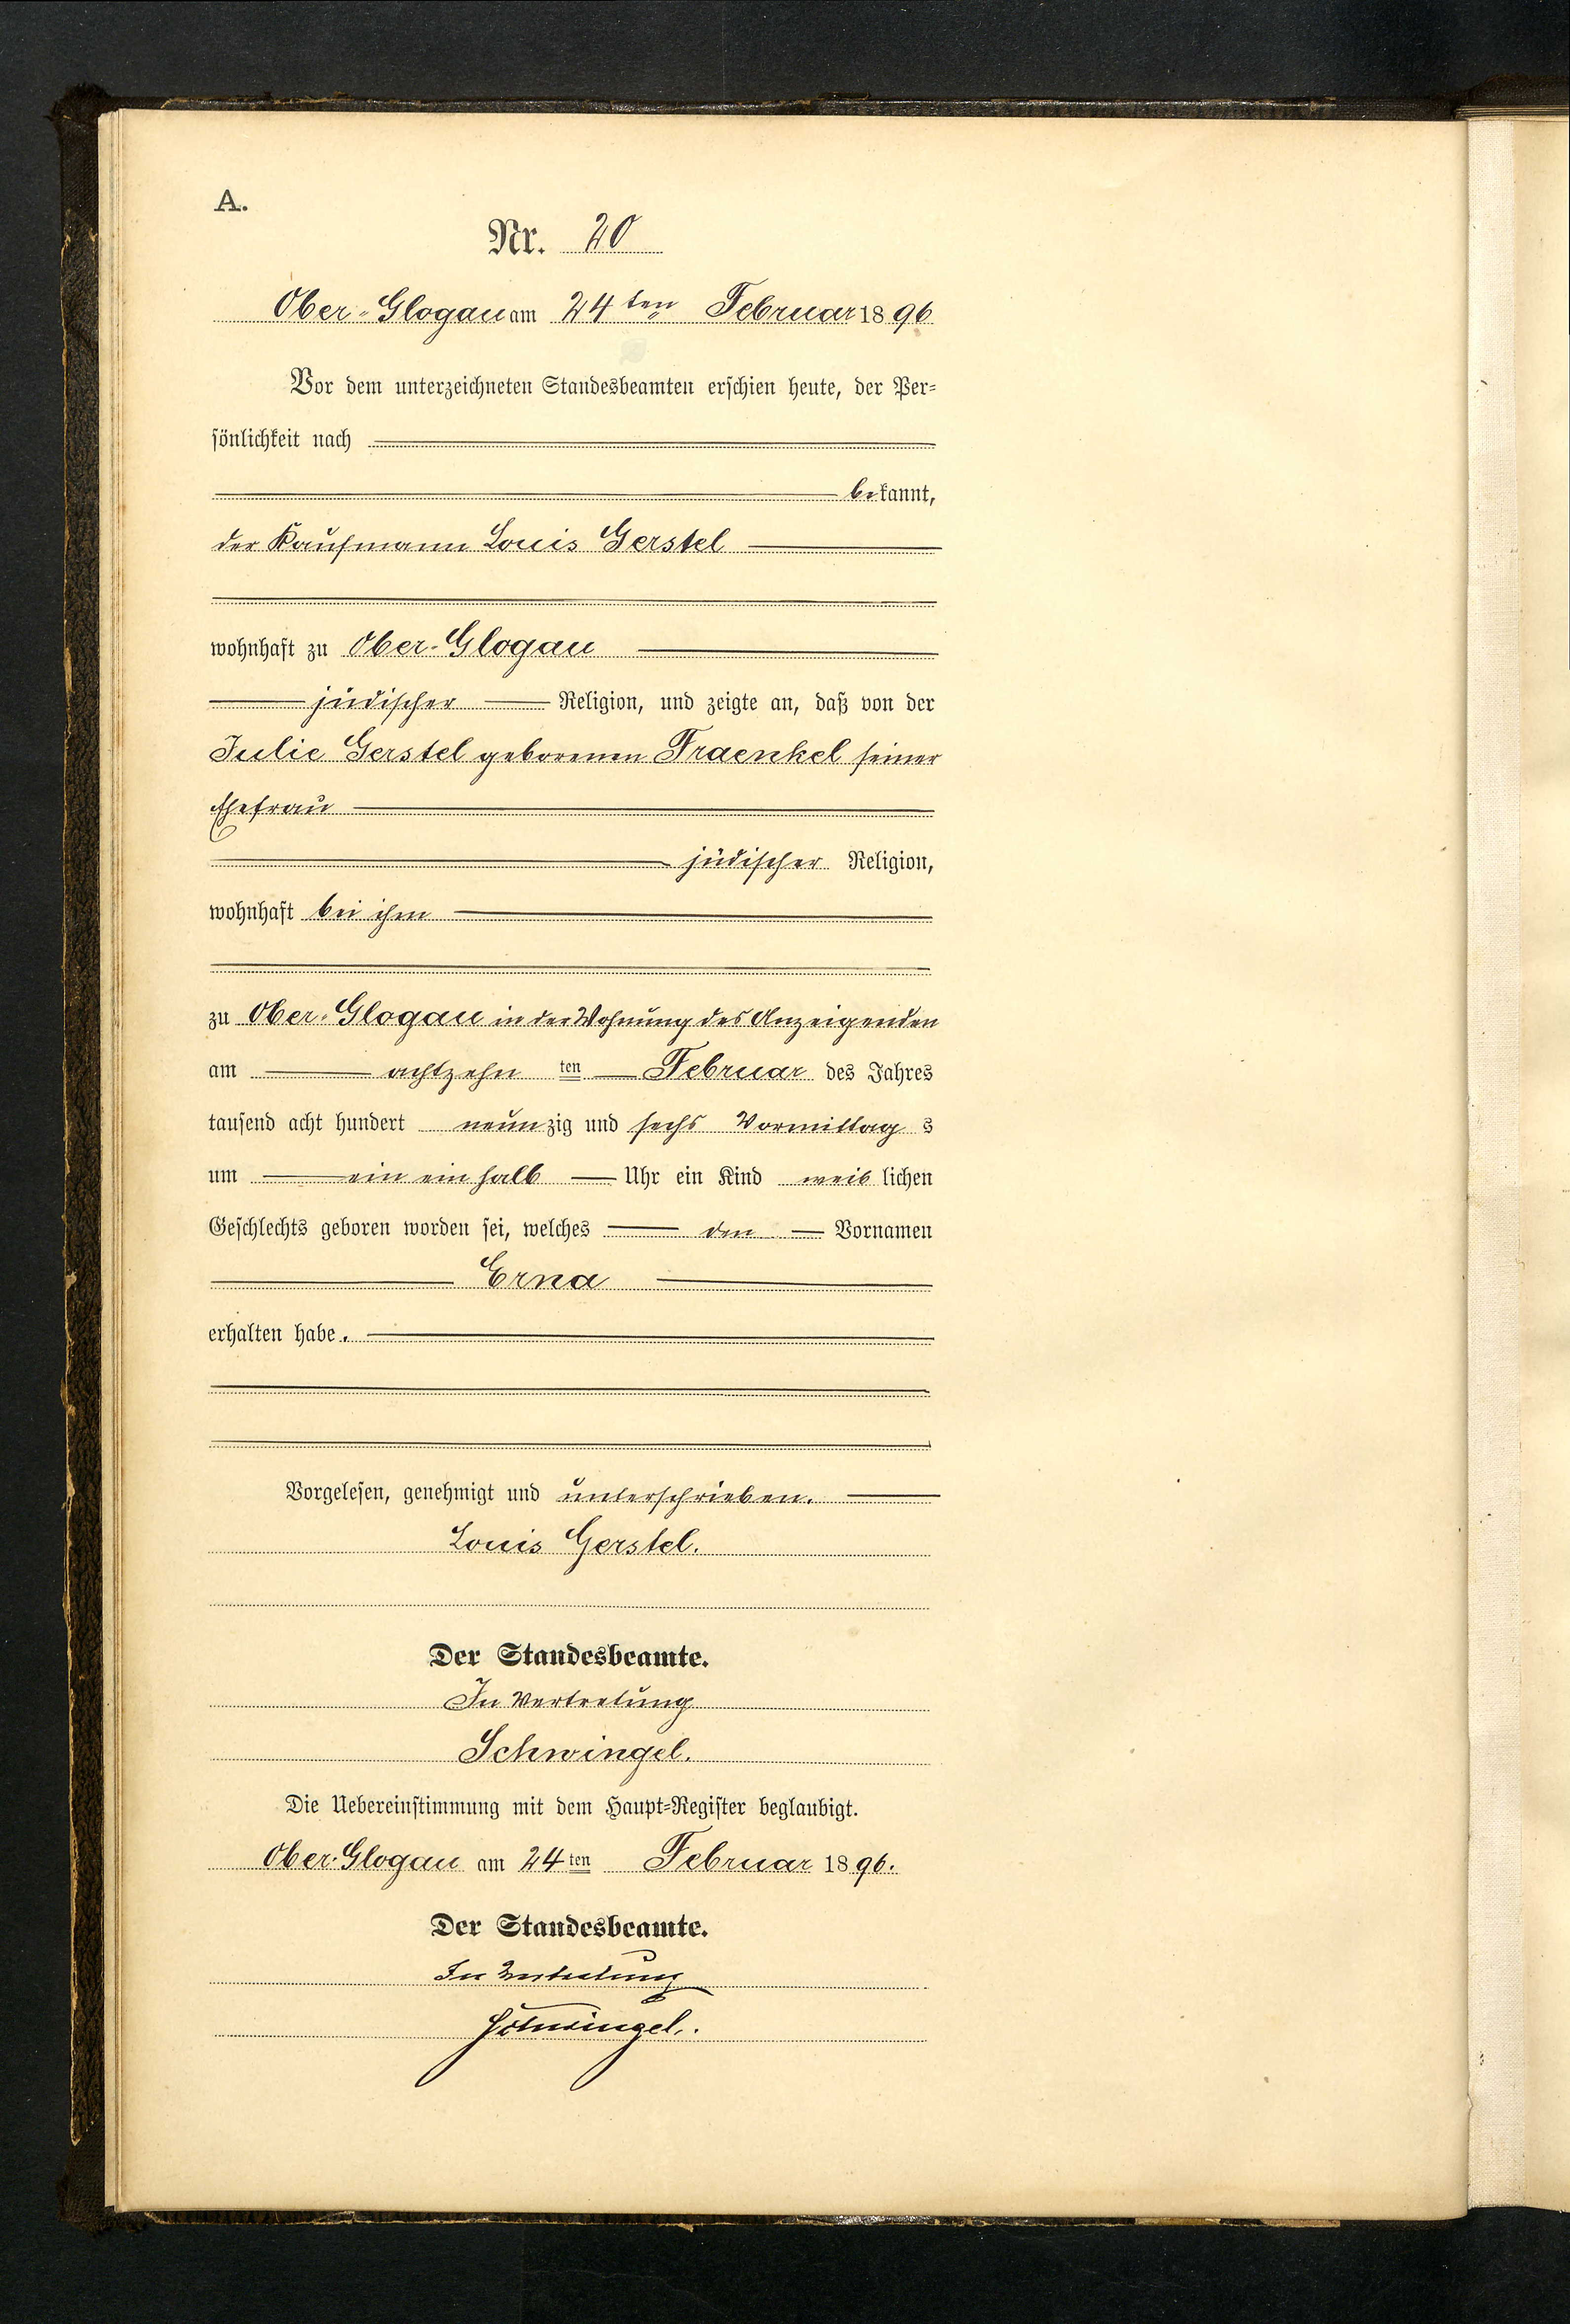 A.
Nr. 20
Ober-Glogau am 24ten Februar 1896
Vor dem unterzeichneten Standesbeamten erschien heute, der Per-
sönlichkeit nach
bekannt,
der Kaufmann Louis Gerstel
wohnhaft zu Ober-Glogau
jüdischer Religion, und zeigte an, daß von der
Julie Gerstel geborenen Fraenkel seiner
Ehefrau
jüdischer Religion,
wohnhaft bei ihm
zu Ober-Glogau in der Wohnung des Anzeigenden
am achtzehn ten Februar des Jahres
tausend acht hundert neunzig und sechs Vormittags
um ein ein halb Uhr ein Kind weiblichen
Geschlechts geboren worden sei, welches den Vornamen
Erna
erhalten habe.
Vorgelesen, genehmigt und unterschrieben.
Louis Gerstel.
Der Standesbeamte.
In Vertretung
Schwingel.
Die Uebereinstimmung mit dem Haupt-Register beglaubigt.
Ober-Glogau am 24ten Februar 1896.
Der Standesbeamte.
In Vertretung
Schwingel.